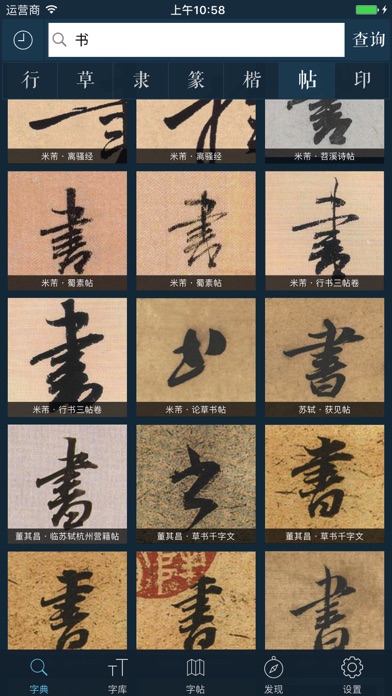 运营商 上午10:58
书 查询
行 草 隶 篆 楷 帖 印
米芾·离骚经 米芾·离骚经 米芾·苕溪诗帖
書 書 書
米芾·蜀素帖 米芾·蜀素帖 米芾·行书三帖卷
書 书 書
米芾·行书三帖卷 米芾·论草书帖 苏轼·获见帖
書 书 書
董其昌·临苏轼杭州营籍帖 董其昌·草书千字文 董其昌·草书千字文
書 書 書
字典 字库 字帖 发现 设置